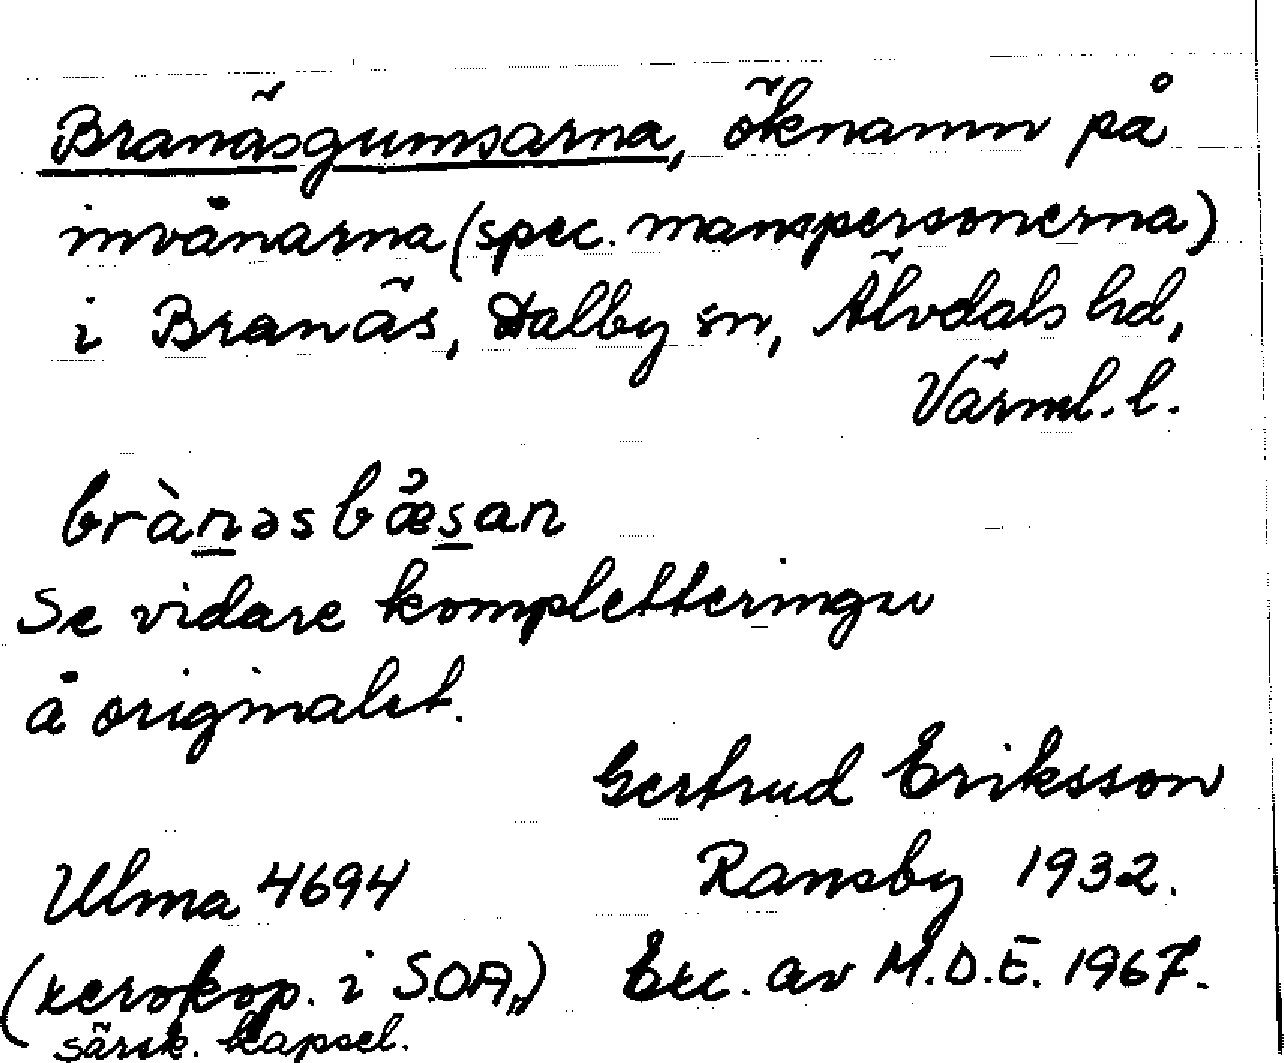 Branäsgumsarna, öknamn på
invånarna (spec. manspersonerna)
i Branäs, Dalby sn, Älvdals hd,
Värml. l.
brànəsbǽsan
Se vidare kompletteringar
å originalet.
Gertrud Eriksson
Ulma 4694 Ransby 1932.
(xerokop. i SOA, Exc. av M.D.E. 1967.
särsk. kapsel.